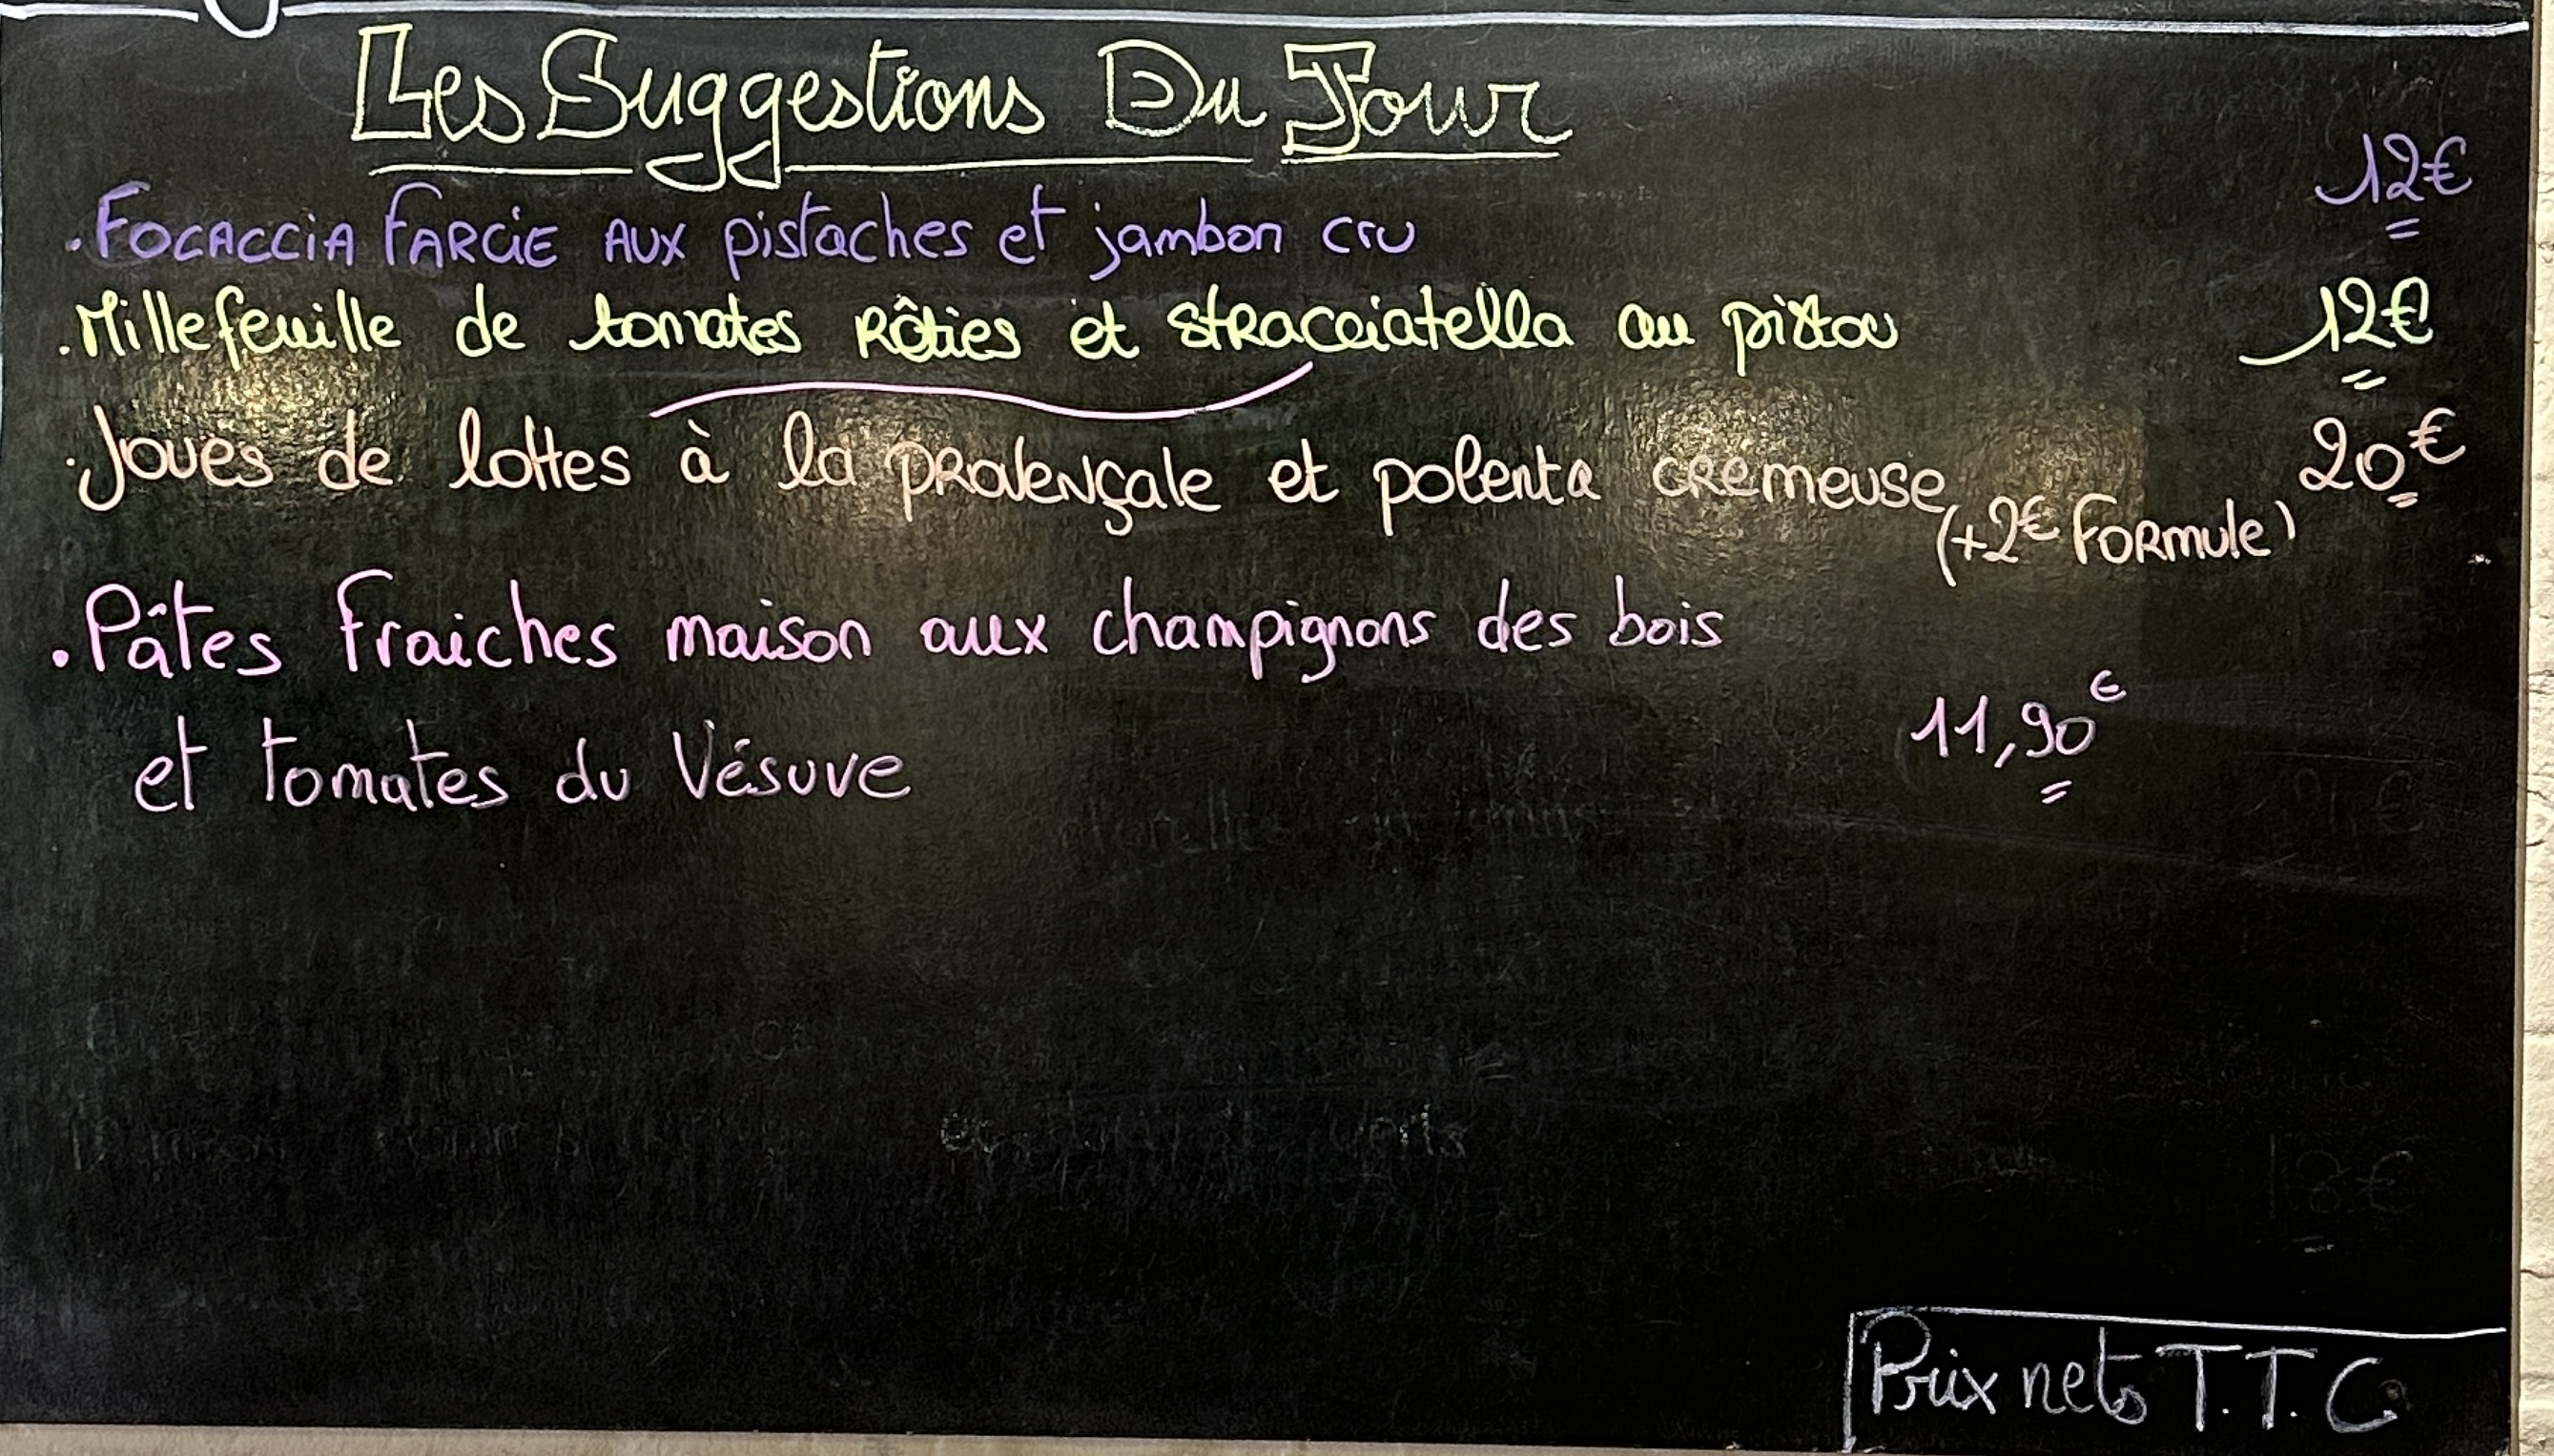 Les Suggestions Du Jour
. FOCACCIA FARCIE AUX pistaches et jambon cru 12€
. Millefeuille de tomates Rôties et stracciatella au pistou 12€
. Joues de lottes à la provençale et polenta crémeuse 20€
(+2€ Formule)
. Pâtes fraiches maison aux champignons des bois
et tomates du Vésuve 11,90€
18€
Prix nets T.T.C